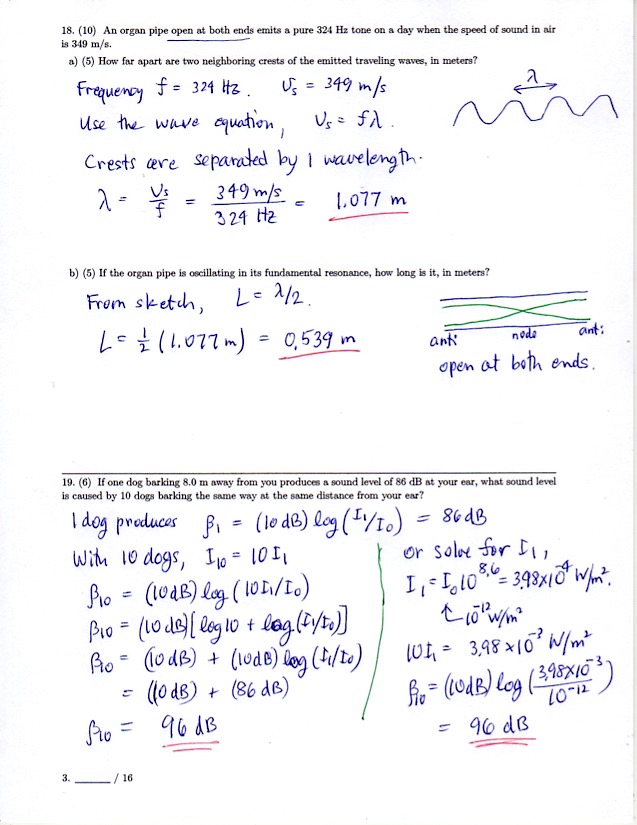 18. (10) An organ pipe open at both ends emits a pure 324 Hz tone on a day when the speed of sound in air
is 349 m/s.
a) (5) How far apart are two neighboring crests of the emitted traveling waves, in meters?
Frequency f = 324 Hz. Vs = 349 m/s
λ
Use the wave equation, Vs = fλ.
Crests are separated by 1 wavelength.
λ = Vs/f = 349 m/s / 324 Hz = 1.077 m
b) (5) If the organ pipe is oscillating in its fundamental resonance, how long is it, in meters?
From sketch, L = λ/2.
L = 1/2 (1.077 m) = 0.539 m
anti node anti
open at both ends.
19. (6) If one dog barking 8.0 m away from you produces a sound level of 86 dB at your ear, what sound level
is caused by 10 dogs barking the same way at the same distance from your ear?
1 dog produces β1 = (10 dB) log (I1/I0) = 86 dB
With 10 dogs, I10 = 10 I1
β10 = (10 dB) log (10 I1/I0)
β10 = (10 dB) [log 10 + log (I1/I0)]
β10 = (10 dB) + (10 dB) log (I1/I0)
= (10 dB) + (86 dB)
β10 = 96 dB
or solve for I1,
I1 = I0 10^8.6 = 3.98 x 10^-4 W/m².
10^-12 W/m²
10 I1 = 3.98 x 10^-3 W/m²
β10 = (10 dB) log (3.98 x 10^-3 / 10^-12)
= 96 dB
3. ______ / 16